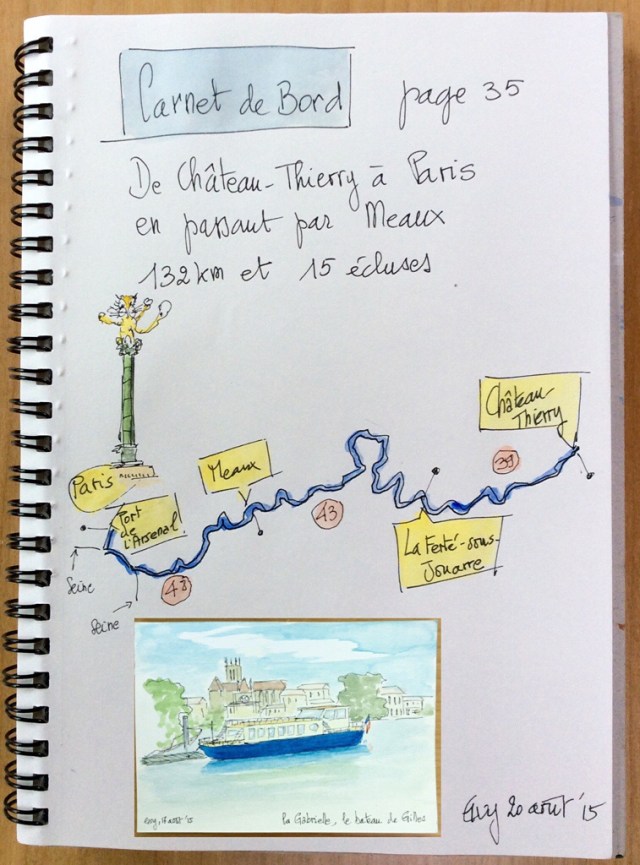 Carnet de Bord
page 35
De Château-Thierry à Paris
en passant par Meaux
132 km et 15 écluses
Château-
Thierry
39
Meaux
Paris
Port
de
l'Arsenal
43
La Ferté-sous-
Jouarre
48
Seine
Seine
La Gabrielle, le bateau de Gilles
20 août '15